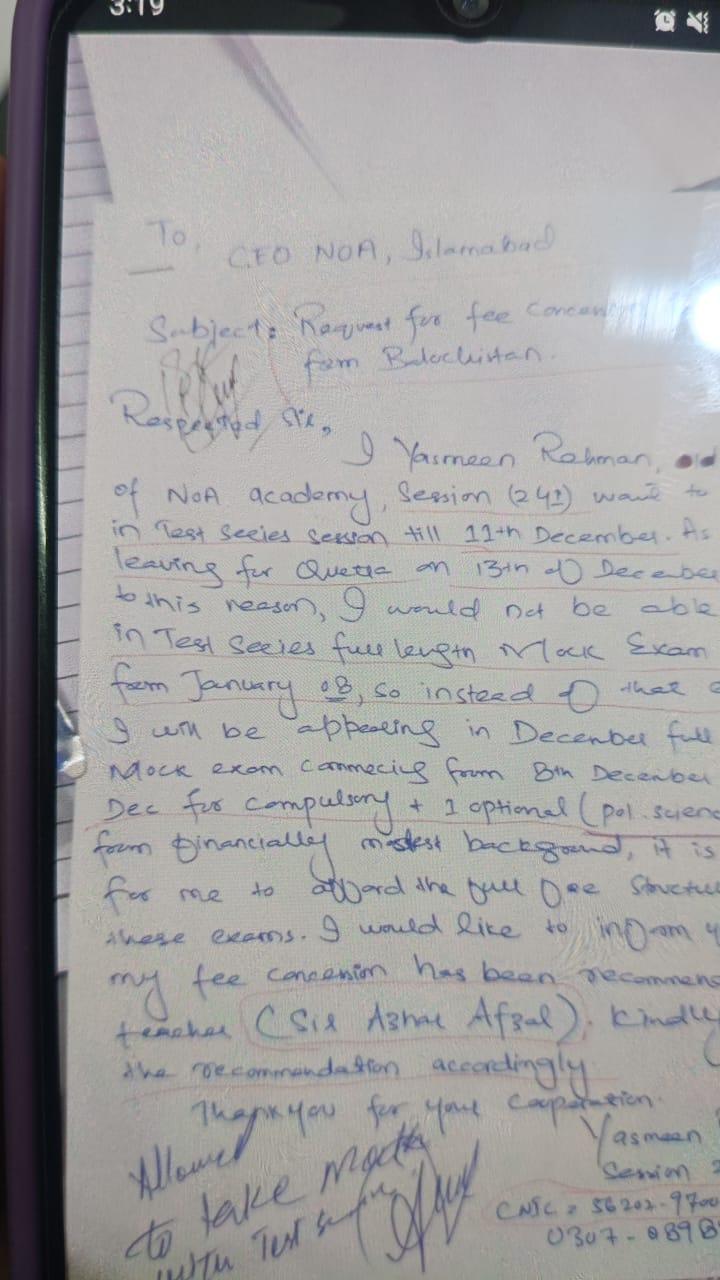 3:19
To,
CEO NOA, Islamabad
Subject: Request for fee
form Balochistan.
Respected Sir,
I Yasmeen Rehman, old
of NOA academy, Session (241) want to
in Test Seeies session till 11th December. As
leaving for Quetta on 13th of December
to this reason, I would not be able
in Test Seeies full length Mock Exam
form January 08, so instead of that
I will be appearing in December full
Mock exam commecing from 8th December
Dec for compulsory + 1 optional (pol. scienc
form financially modest background, it is
for me to afford the full fee Structu
these exams. I would like to inform y
my fee concession has been recommen
teacher (Sir Azhar Afzal). Kindly
the recommendation accordingly
Thank you for your Cooperation.
Yasmeen
Session 2
CNIC = 56202-9700
0307-0898
Allowed
to take Mock
with Test